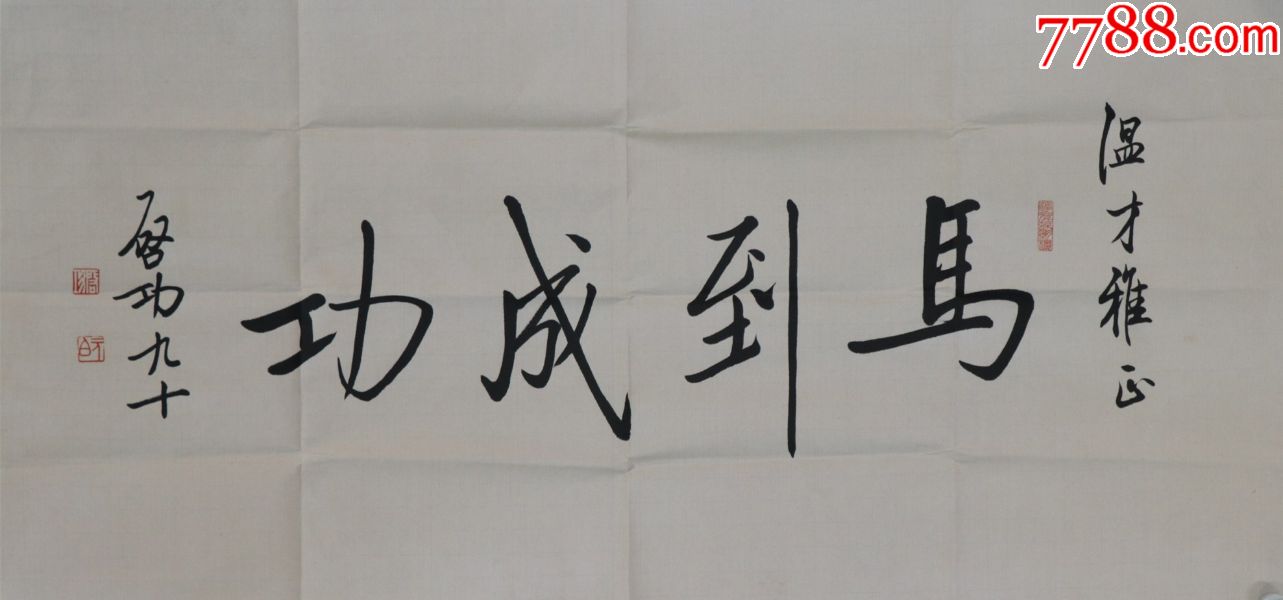 7788.com
温才雅正
馬到成功
啓功九十